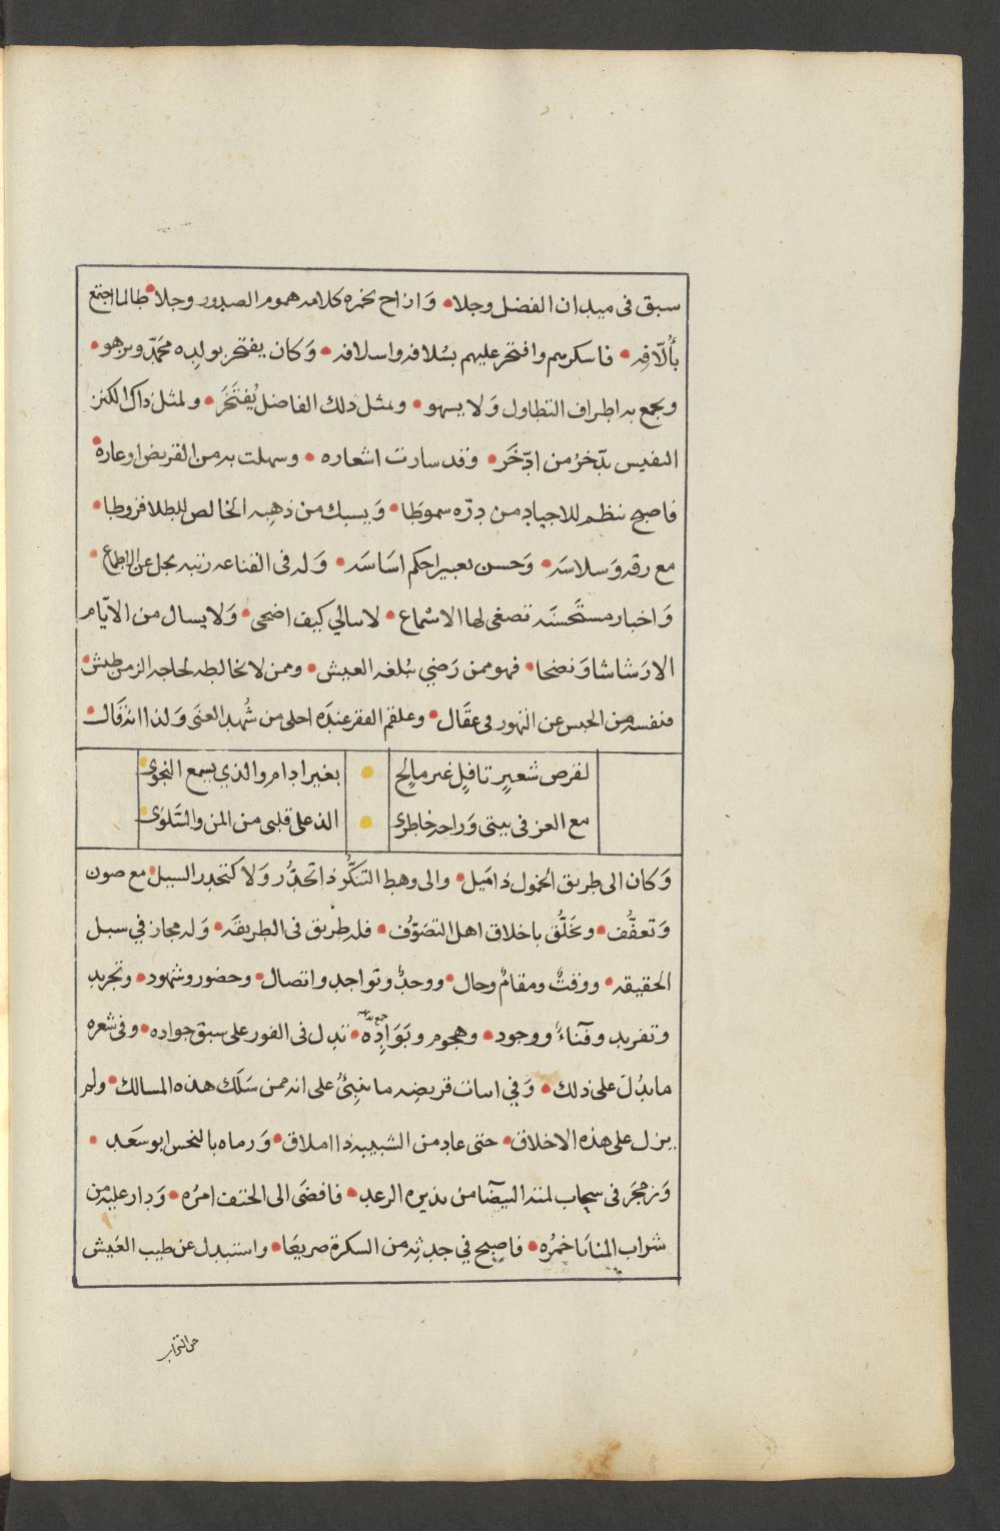 سبق فى ميدان الفضل وجلا • وَازاح بخمرة كلامه هموم الصدور وجلا • طالما اجتمع
بأُلّافِه • فاسكرهم وافتخر عليهم بسُلافه واسلافه • وَكان يفتخر بولدِه محَمّد ويزهو •
ويجمع به اطراف التطاول وَلا يسهو • وبمثل ذلك الفاضل يُفتَخَر • ولمثل ذاك الكنز
النفيس يدّخرُ من ادّخَر • وقد سارت اشعاره • وسهلت به من القريض اوعاره •
فاصبح ينظم للاجياد من دِرّه سموطا • وَيسبك من ذهبِه الخالص للطلا قروطا •
مع رقه وَسلاسَه • وَحسن تعبير احكم اسَاسَه • وَله فى القناعه رتبه تجل عن الاطماع •
وَاخبار مستَحسَنَه تصغى لها الاسْماع • لا يبالي كيف اضحى • وَلا يسال من الايّام
الا رَشاشا وَنضحا • فهو ممن رَضي ببُلغه العيش • وممن لا يخالطه لحاجه الزمن طيش •
فنفسه من الحبس عن التهور فى عقَال • وعلقم الفقر عندَه احلى من شُهد الغنَى وَلذا انه قَال •
لقرص شعيرٍ تافِلٍ غير مالح • بغير ادام والذي يسمع النجوى •
مع العز فى بيتى وَراحه خاطرى • الذ على قلبى من المن والسَّلوَى •
وَكان الى طريق الخمول ذا مَيل • والى وهط التنكُّر ذا تحدُّر وَلا كتحدر السيل • مع صون
وَتعفُّف • وتخَلُّق باخلاق اهل التصَوّف • فله طريق فى الطريقَه • وَله مجاز في سبل
الحقيقه • ووقتٌ ومقامٌ وحال • ووجدٌ وتواجد واتصال • وحضور وشهود • وتجريد
وتفريد وفَناءَ ووجود • وهجوم وبَوَادِه • تدل فى الفور على سبق جواده • وفى شعره
ما يدُل على ذلك • وَفي ابيات قريضِه ما ينبِئُ على انه ممن سَلَك هذه المسالك • ولم
يزل على هذه الاخلاق • حتى عاد من الشبيبه ذا املاق • وَرماه بالنحس ابو سَعد •
وَزمجَر فى سحاب لمته البيضا من نذيره الرعد • فافضَى الى الحتف امرُه • وَدار عليه من
شراب المنايَا خمرُه • فاصبح في جدثِه من السكرة صريعَا • واستبدل عن طيب العَيش